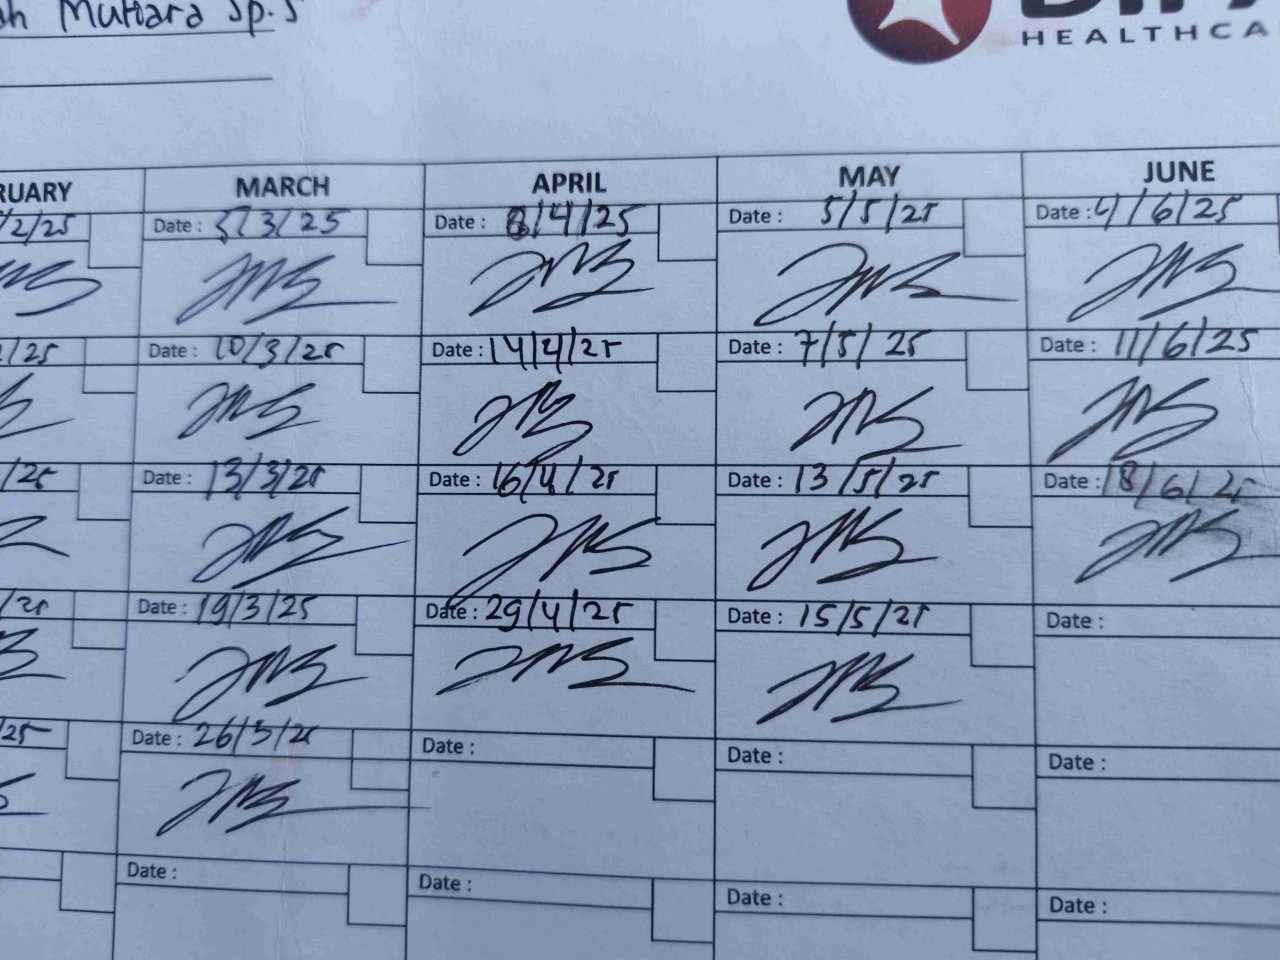 Muttara Sp.S
HEALTHCA
RUARY MARCH APRIL MAY JUNE
/2/25 Date : 5/3/25 Date : 8/4/25 Date : 5/5/25 Date : 4/6/25
/25 Date : 10/3/25 Date : 14/4/25 Date : 7/5/25 Date : 11/6/25
/25 Date : 13/3/25 Date : 16/4/25 Date : 13/5/25 Date : 18/6/25
/25 Date : 19/3/25 Date : 29/4/25 Date : 15/5/25 Date :
/25 Date : 26/3/25 Date : Date : Date :
Date : Date : Date : Date :